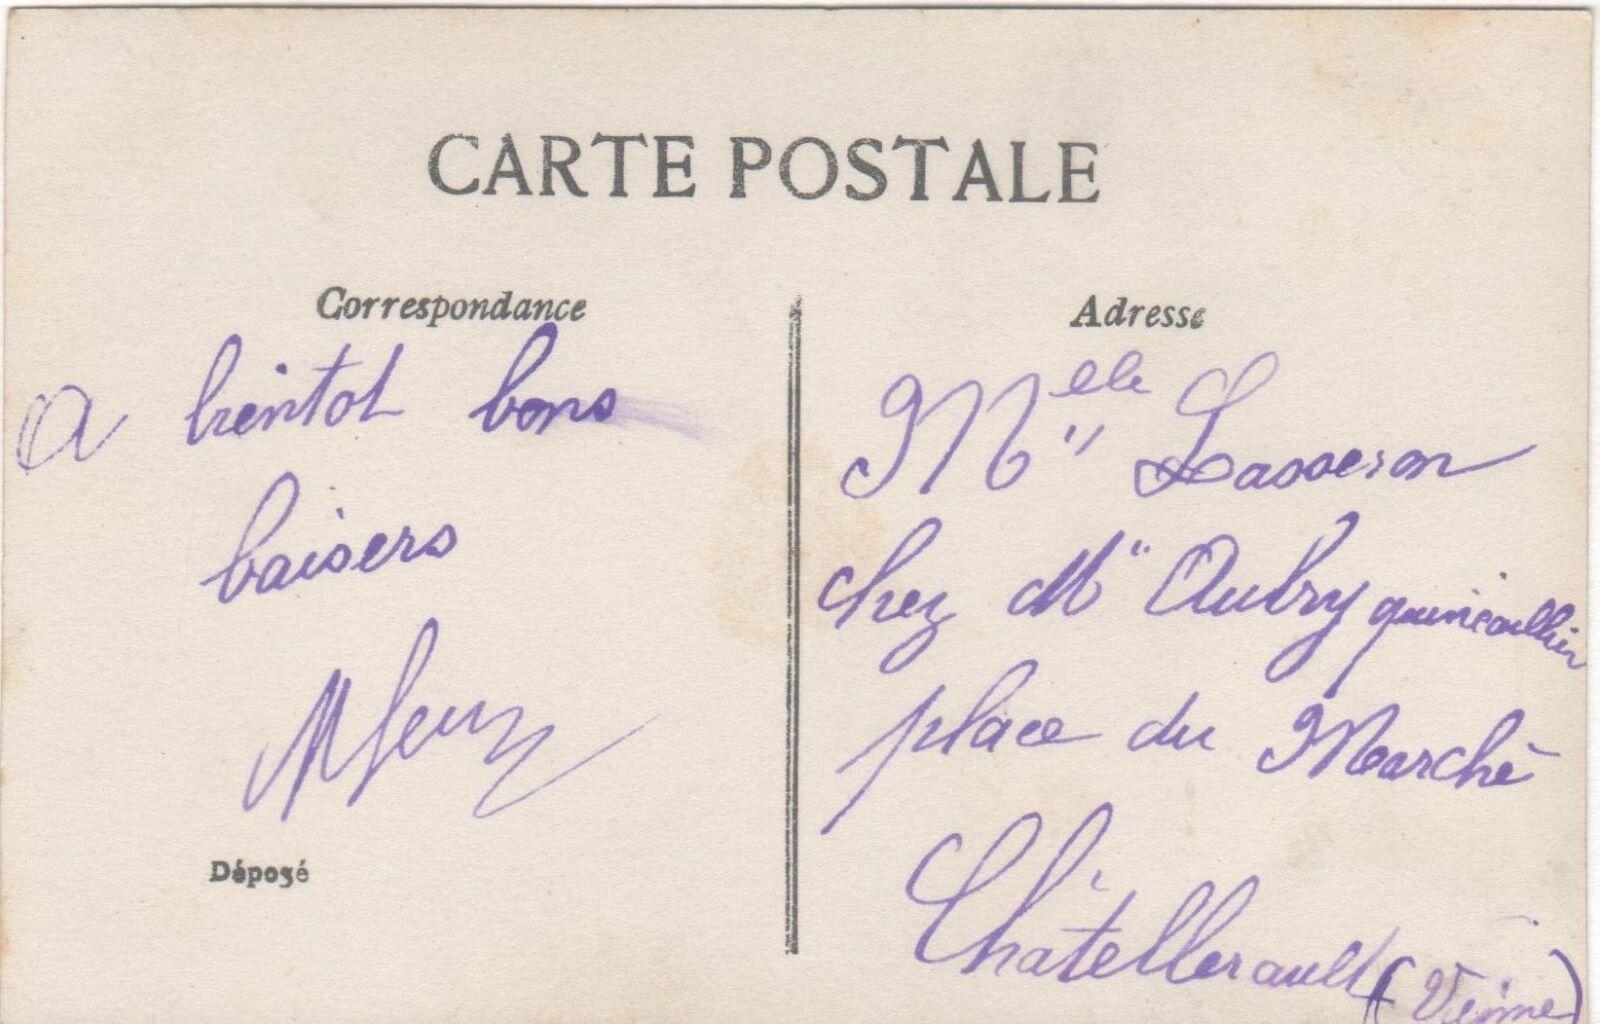 CARTE POSTALE
Correspondance
A bientot bons
baisers
Déposé
Adresse
Melle Lasseron
chez Mr Aubry quincaillier
place du Marché
Châtellerault (Vienne)